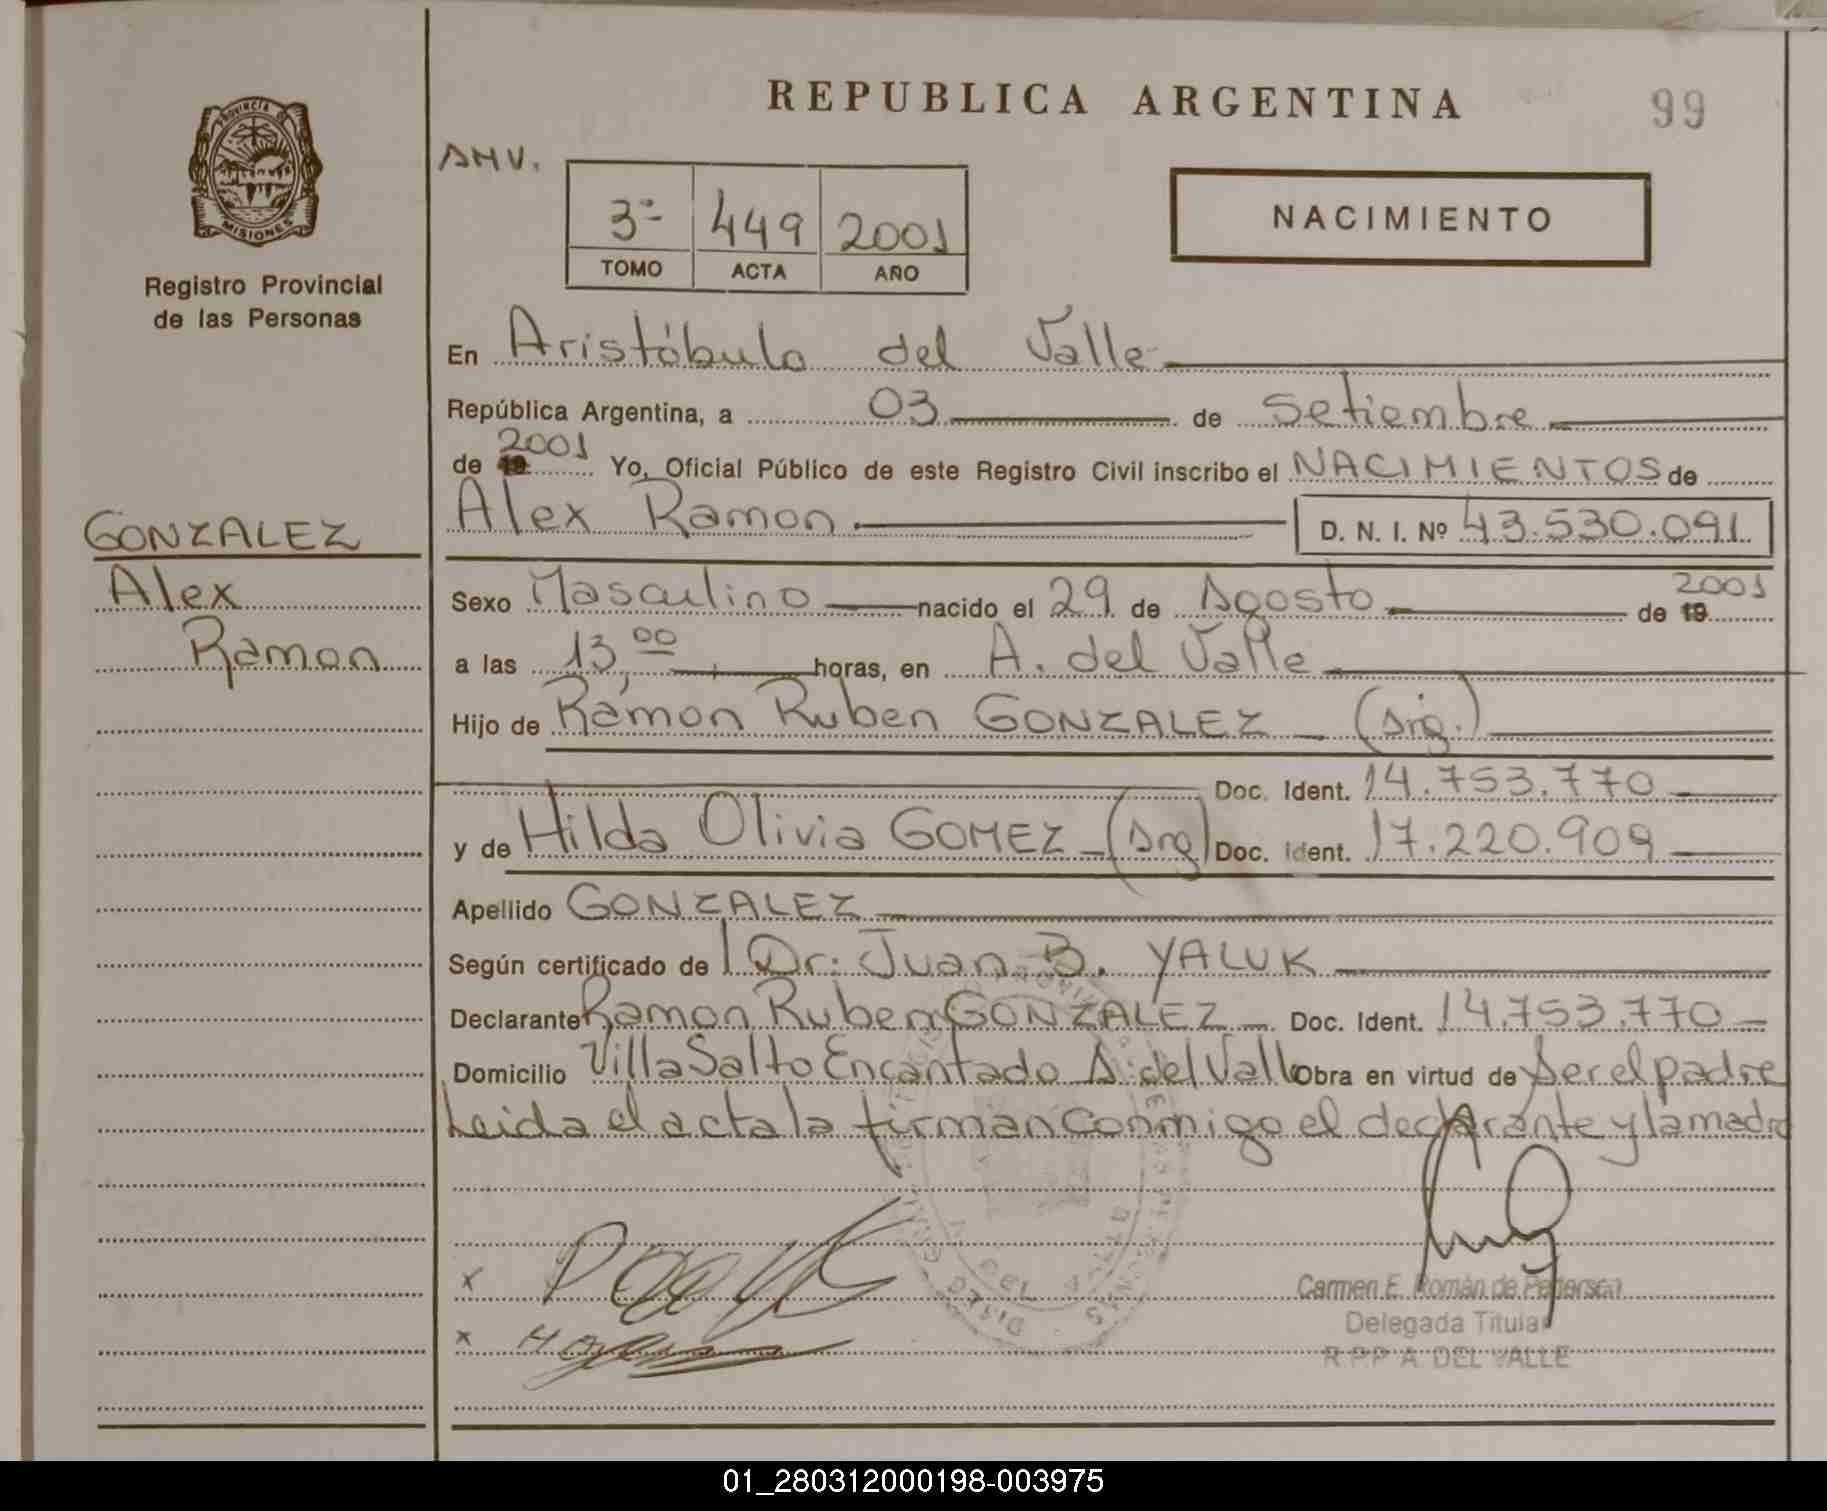 REPUBLICA ARGENTINA
99
PROVINCIA DE
MISIONES
Registro Provincial
de las Personas
AMV.
3ª 449 2001
TOMO ACTA AÑO
NACIMIENTO
En Aristóbulo del Valle
República Argentina, a 03 de Setiembre
de 19 2001 Yo, Oficial Público de este Registro Civil inscribo el NACIMIENTOS de
Alex Ramon D. N. I. Nº 43.530.091
GONZALEZ
Alex
Ramon
Sexo Masculino nacido el 29 de Agosto de 19 2001
a las 13,00 horas, en A. del Valle
Hijo de Ramón Ruben GONZALEZ (Arg.)
Doc. Ident. 14.753.770
y de Hilda Olivia GOMEZ (Arg) Doc. Ident. 17.220.909
Apellido GONZALEZ
Según certificado de Dr. Juan B. YALUK
Declarante Ramon Ruben GONZALEZ Doc. Ident. 14.753.770
Domicilio Villa Salto Encantado A. del Valle Obra en virtud de Ser el padre
Leida el acta la firman conmigo el declarante y la madre
x
x
Carmen E. Román de Pedersen
Delegada Titular
R P P A DEL VALLE
01_280312000198-003975